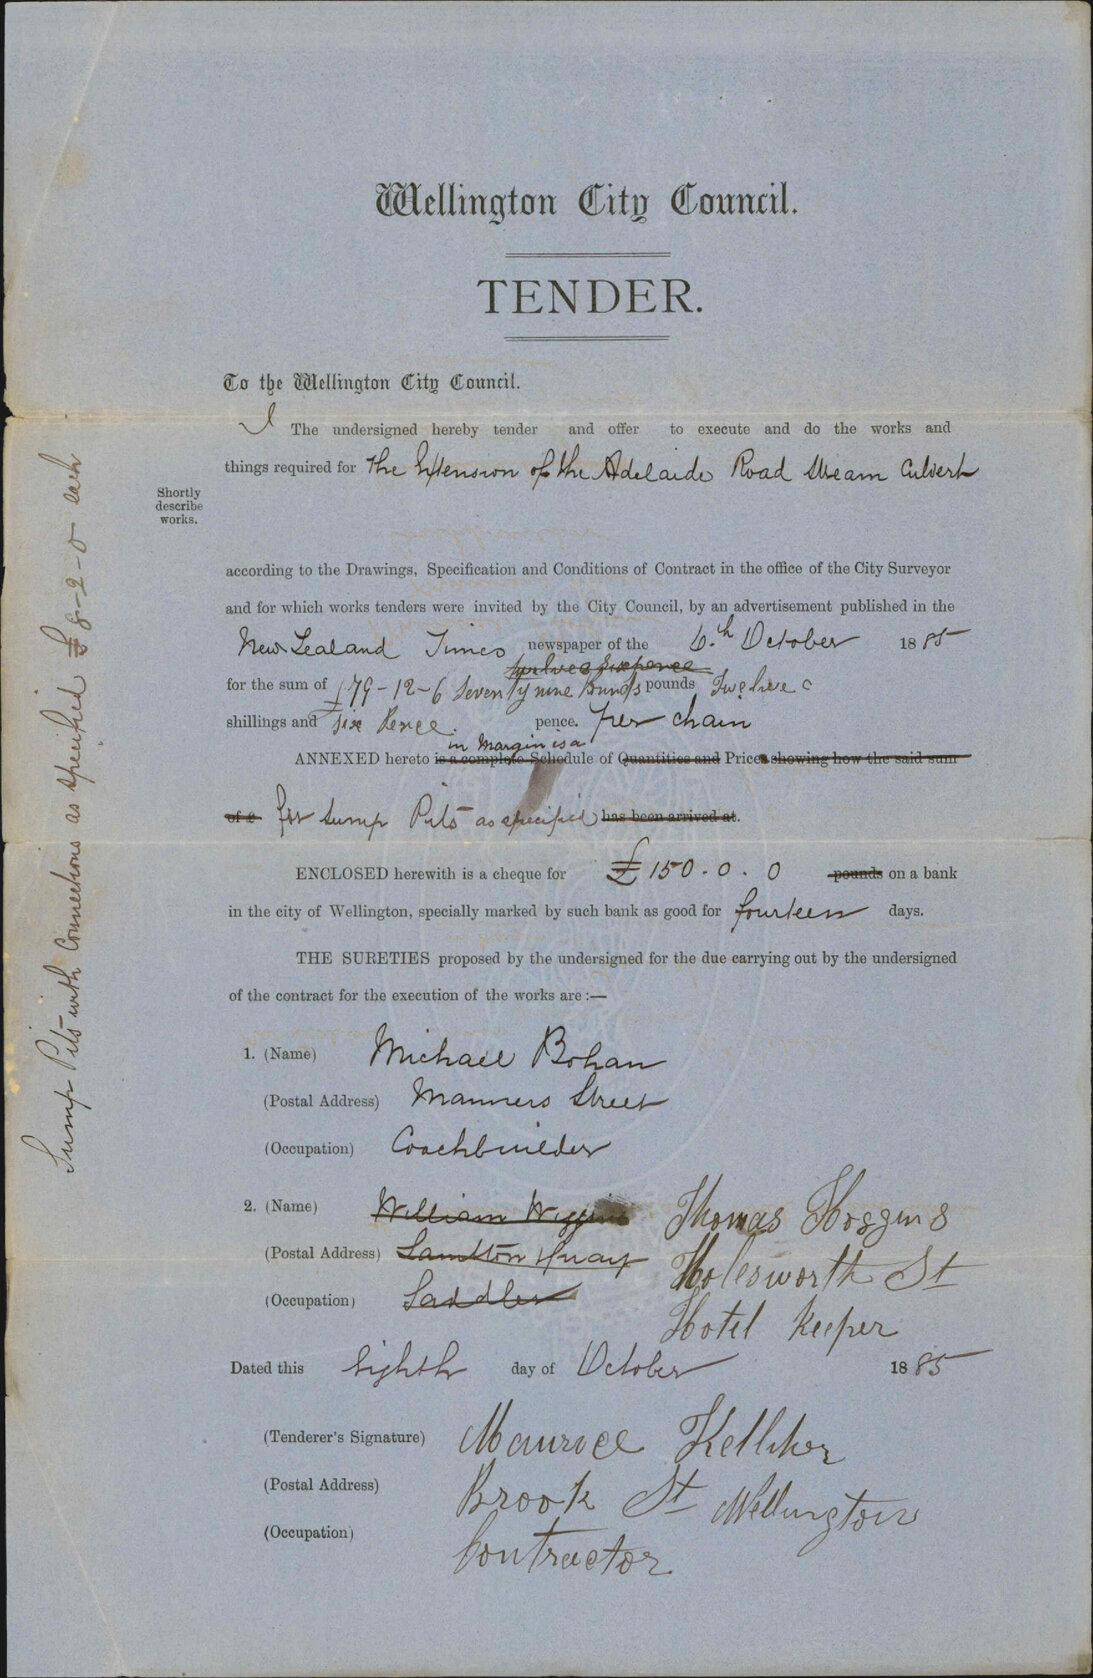 Wellington City Council.
TENDER.
To the Wellington City Council.
I The undersigned hereby tender and offer to execute and do the works and
things required for the Extension of the Adelaide Road Stream Culvert
Shortly
describe
works.
according to the Drawings, Specification and Conditions of Contract in the office of the City Surveyor
and for which works tenders were invited by the City Council, by an advertisement published in the
New Zealand Times newspaper of the 6.th October 1885
twelve & sixpence
for the sum of £79-12-6 Seventy nine Pounds pounds Twelve
shillings and six Pence. pence. per chain
in Margin is a
ANNEXED hereto is a complete Schedule of Quantities and Prices showing how the said sum
of £ for Sump Pits as specified has been arrived at.
ENCLOSED herewith is a cheque for £150.0.0 pounds on a bank
in the city of Wellington, specially marked by such bank as good for fourteen days.
THE SURETIES proposed by the undersigned for the due carrying out by the undersigned
of the contract for the execution of the works are:—
1. (Name) Michael Bohan
(Postal Address) Manners Street
(Occupation) Coachbuilder
2. (Name) William Wiggins Thomas Hoggins
(Postal Address) Lambton Quay Molesworth St
(Occupation) Saddler Hotel Keeper
Dated this Eighth day of October 1885
(Tenderer's Signature) Maurice Kelliher
(Postal Address) Brook St Wellington
(Occupation) Contractor
Sump Pits with Connections as specified £8-2-0 each